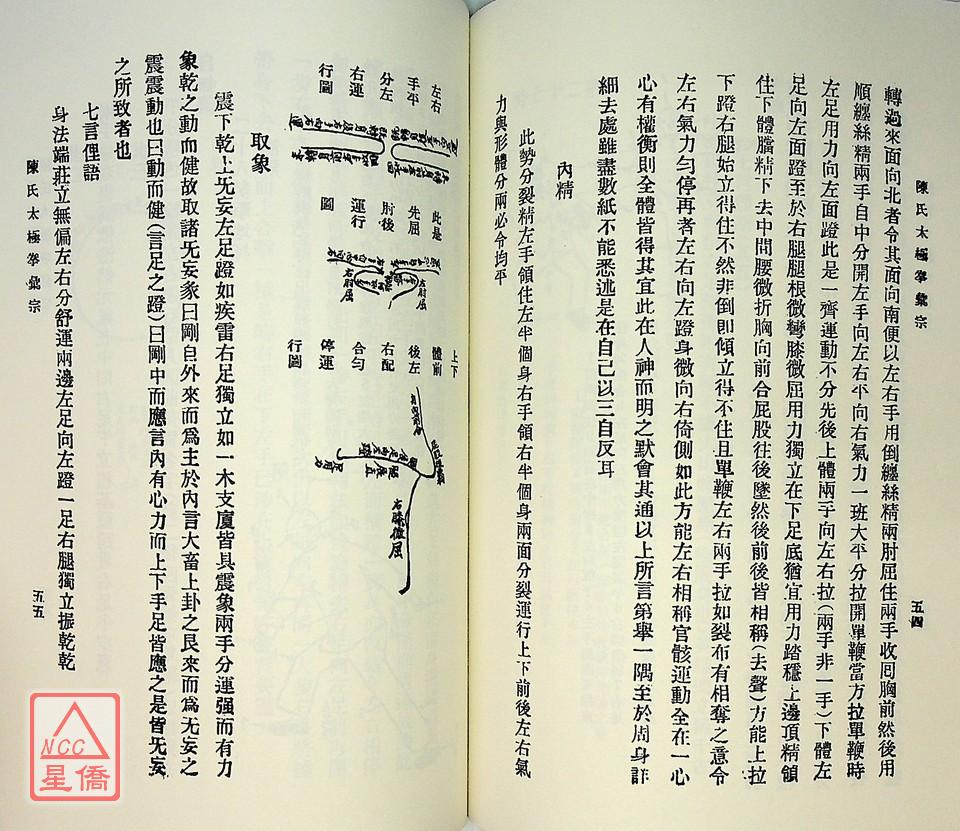 陳氏太極拳彙宗
五四
轉過來面向北者令其面向南便以左右手用倒纏絲精兩肘屈住兩手收囘胸前然後用
順纏絲精兩手自中分開左手向左右平向右氣力一班大平分拉開單鞭當方拉單鞭時
左足用力向左面蹬此是一齊運動不分先後上體兩手向左右拉(兩手非一手)下體左
足向左面蹬至於右腿腿根微彎膝微屈用力獨立在下足底猶宜用力踏穩上邊頂精領
住下體膽精下去中間腰微折胸向前合屁股往後墜然後前後皆相稱(去聲)方能上拉
下蹬右腿始立得住不然非倒即傾立得不住且單鞭左右兩手拉如裂布有相奪之意令
左右氣力勻停再著左右向左蹬身微向右倚側如此方能左右相稱官骸運動全在一心
心有權衡則全體皆得其宜此在人神而明之默會其通以上所言第舉一隅至於周身詳
細去處雖盡數紙不能悉述是在自己以三自反耳
內精
此勢分裂精左手領住左半個身右手領右半個身兩面分裂運行上下前後左右氣
力與形體分兩必令均平
左右
手平
分左
右運
行圖
此是
先屈
肘後
運行
圖
右肘屈
左肘屈
上下
體前
後左
右配
合勻
停運
行圖
右膝微屈
取象
震下乾上无妄左足蹬如疾雷右足獨立如一木支廈皆具震象兩手分運强而有力
象乾之動而健故取諸无妄彖曰剛自外來而爲主於內言大畜上卦之艮來而爲无妄之
震震動也曰動而健(言足之蹬)曰剛中而應言內有心力而上下手足皆應之是皆无妄
之所致者也
七言俚語
身法端莊立無偏左右分舒運兩邊左足向左蹬一足右腿獨立振乾乾
陳氏太極拳彙宗
五五
NCC
星僑